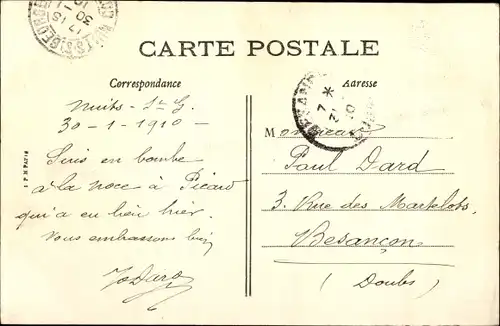 CARTE POSTALE
Correspondance
Adresse
Nuits-St G.
30-1-1910-
Suis en bombe
à la noce à Picard
qui a eu lieu hier.
Vous embrassons bien
Dard
Monsieur
Paul Dard
3. Rue des Martelots,
Besançon
(Doubs)